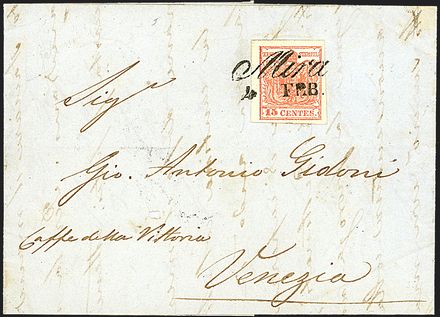 Mira
4 FEB.
15 CENTES.
Sigr
Gio. Antonio Gidoni
Caffe della Vittoria
Venezia